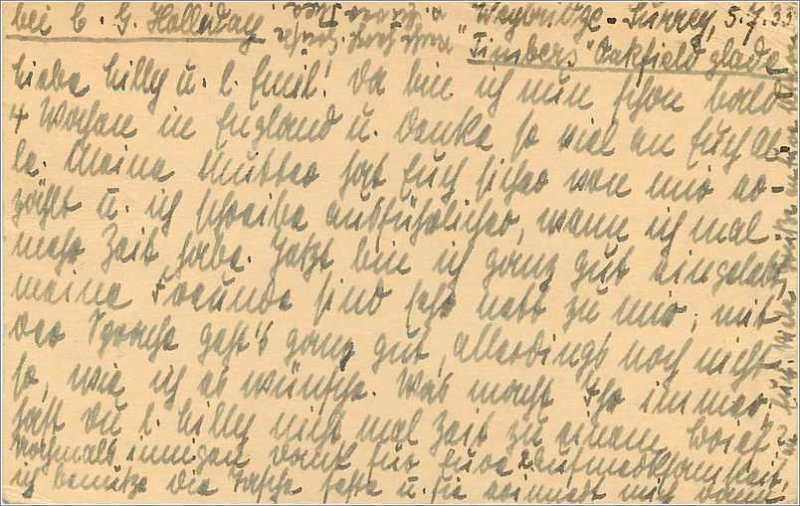 bei E. G. Holliday Weybridge - Surrey, 5.7.39
"Timbers" Oakfield glade
Liebe Lilly u. l. Emil! Da bin ich nun schon bald
4 Wochen in England u. denke so viel an Euch Al-
le. Meine Mutter hat Euch sicher von mir er-
zählt u. ich schreibe ausführlicher, wenn ich mal
mehr Zeit habe. Jetzt bin ich ganz gut eingelebt,
meine Freunde sind sehr nett zu mir, mit
der Sprache geht's ganz gut, allerdings noch nicht
so, wie ich es wünsche. Was macht Ihr immer,
hast du l. Lilly nicht mal Zeit zu einem Brief?
Nochmals innigen Dank für Eure Aufmerksamkeit,
ich benutze die Tasche feste u. sie erinnert mich dann